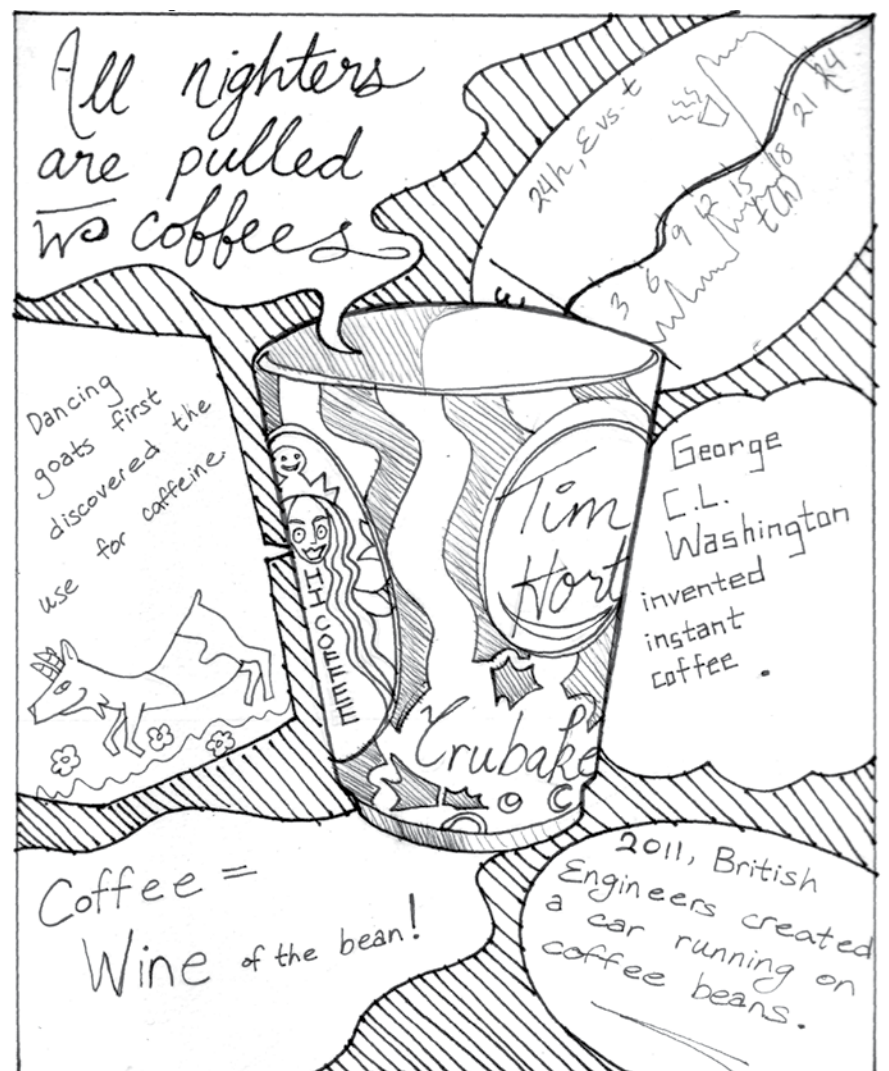 All nighters
are pulled
coffees
24h, E vs. t
E
3 6 9 12 15 18 21 24
t(h)
Dancing
goats first
discovered the
use for caffeine.
COFFEE
Tim
Hort
George
C.L.
Washington
invented
instant
coffee.
Coffee =
Wine of the bean!
2011, British
Engineers created
a car running on
coffee beans.